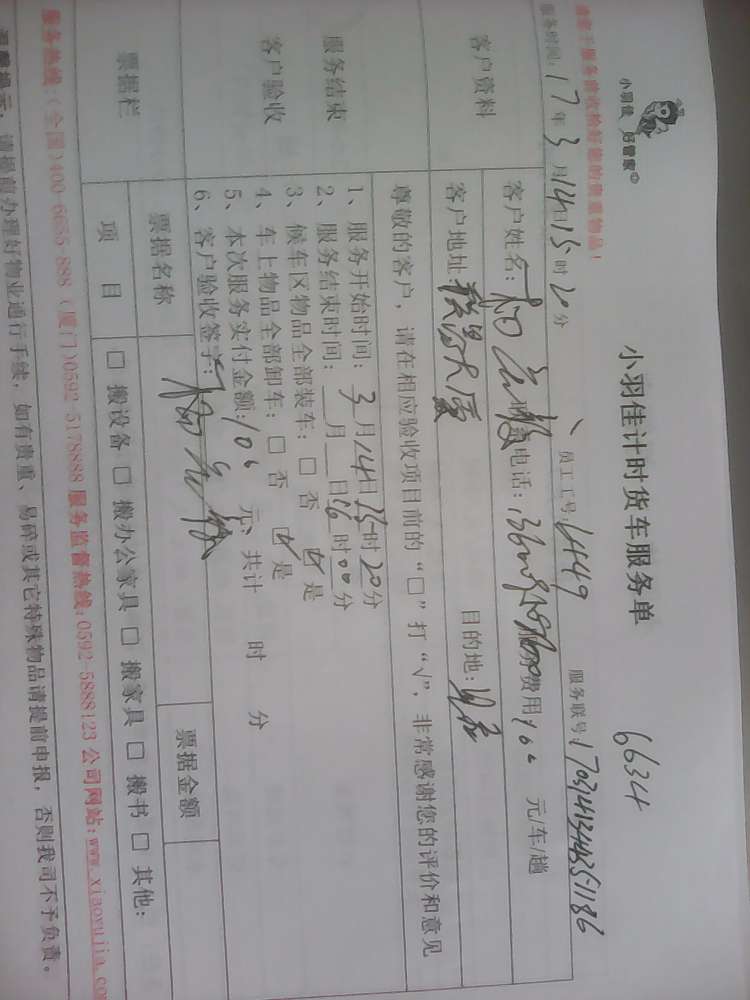 小羽佳 好管家
小羽佳计时货车服务单
6634
请客于服务前收拾好您的贵重物品！
服务时间：17年3月14日15时20分
员工工号：4449
服务联号：
客户资料
客户姓名：
电话：
服务费用100元/车/趟
客户地址
目的地：
尊敬的客户，请在相应验收项目前的“□”打“√”，非常感谢您的评价和意见
服务结束
客户验收
1、服务开始时间：3月14日15时20分
2、服务结束时间：__月__日16时00分
3、候车区物品全部装车：□否 ☑是
4、车上物品全部卸车：□否 ☑是
5、本次服务实付金额：100元；共计 时 分
6、客户验收签字：
票据栏
票据名称
票据金额
项 目
□搬设备□搬办公家具□搬家具□搬书□其他：
服务热线：（全国）400-6655-888（厦门）0592-5178888 服务监督热线：0592-5888123 公司网站：www.xiaoyujia.co
温馨提示：请提前办理好物业通行手续，如有贵重、易碎或其它特殊物品请提前申报，否则我司不予负责。